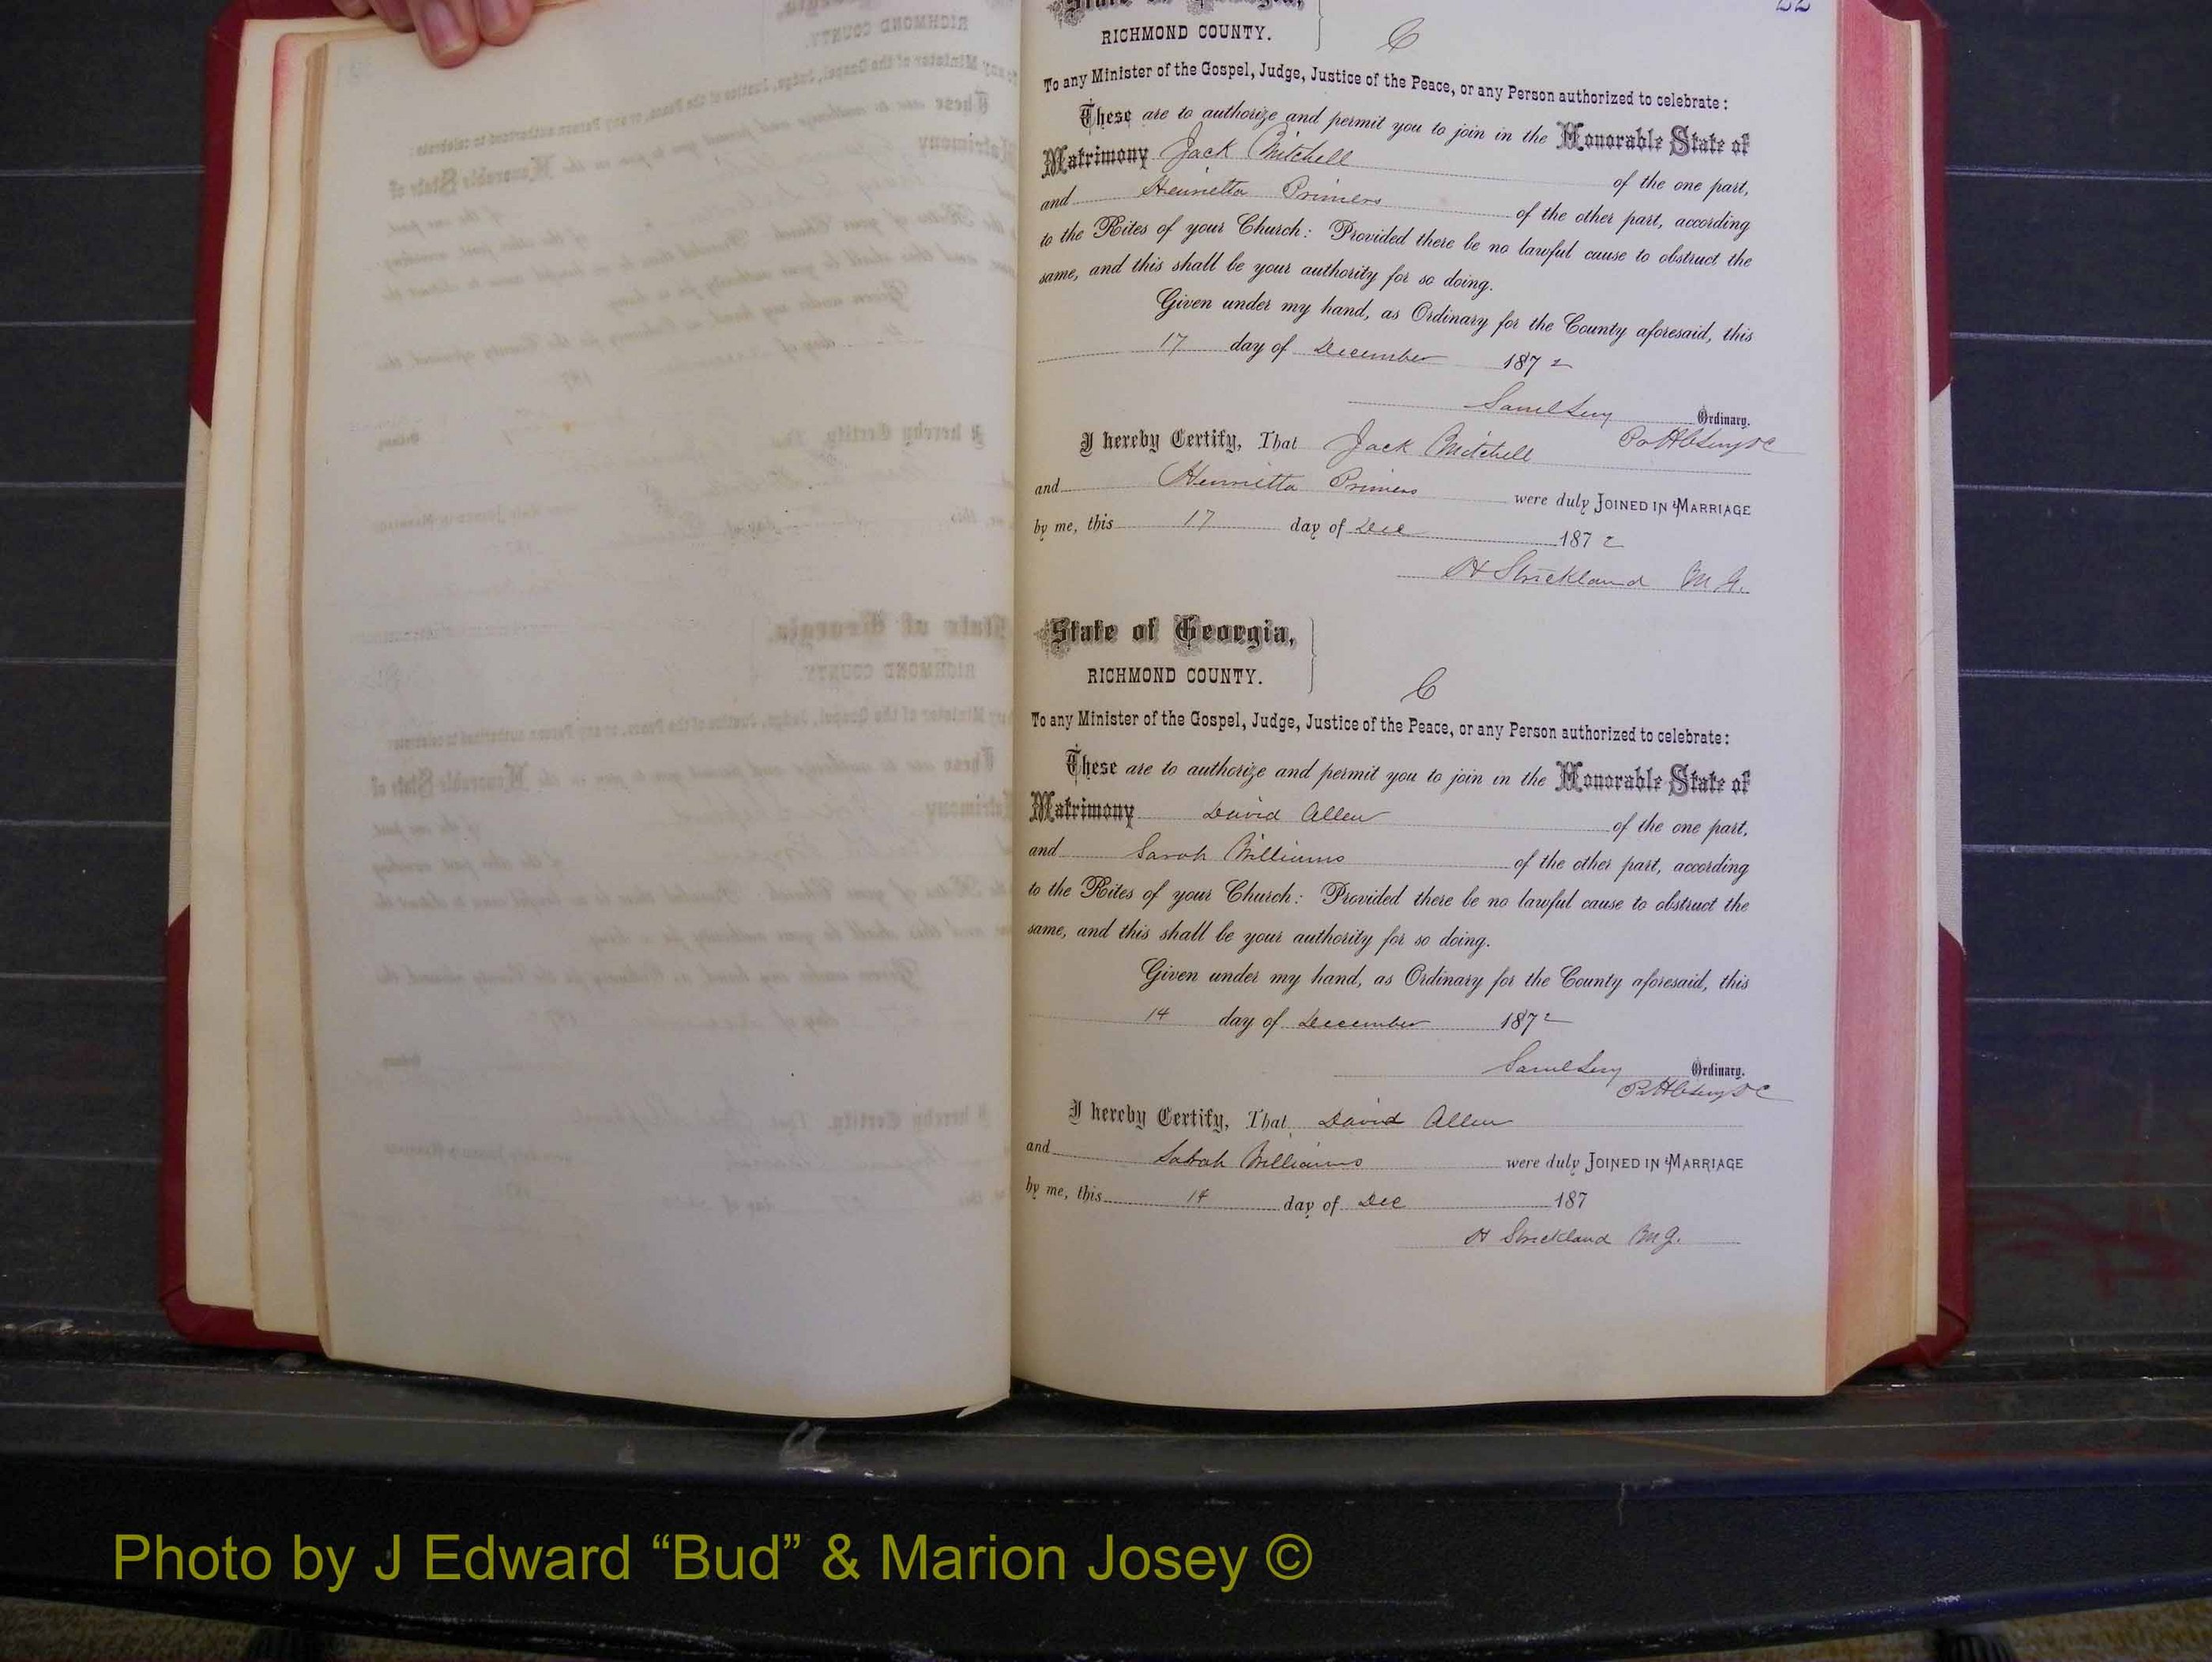 22
State of Georgia,
RICHMOND COUNTY.
C
To any Minister of the Gospel, Judge, Justice of the Peace, or any Person authorized to celebrate:
These are to authorize and permit you to join in the Honorable State of
Matrimony Jack Mitchell of the one part,
and Henrietta Primers of the other part, according
to the Rites of your Church: Provided there be no lawful cause to obstruct the
same, and this shall be your authority for so doing.
Given under my hand, as Ordinary for the County aforesaid, this
17 day of December 1872
Saml Levy Ordinary.
I hereby Certify, That Jack Mitchell
and Henrietta Primers were duly JOINED IN MARRIAGE
by me, this 17 day of Dec 1872
H Strickland M.G.
State of Georgia,
RICHMOND COUNTY.
C
To any Minister of the Gospel, Judge, Justice of the Peace, or any Person authorized to celebrate:
These are to authorize and permit you to join in the Honorable State of
Matrimony David Allen of the one part,
and Sarah Williams of the other part, according
to the Rites of your Church: Provided there be no lawful cause to obstruct the
same, and this shall be your authority for so doing.
Given under my hand, as Ordinary for the County aforesaid, this
14 day of December 1872
Saml Levy Ordinary.
I hereby Certify, That David Allen
and Sarah Williams were duly JOINED IN MARRIAGE
by me, this 14 day of Dec 187
H Strickland M.G.
Photo by J Edward “Bud” & Marion Josey ©